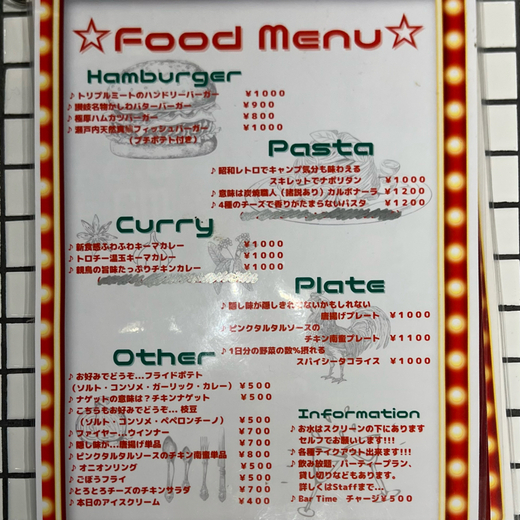 ☆Food Menu☆
Hamburger
♪トリプルミートのハンドリーバーガー ¥1000
♪讃岐名物かしわバターバーガー ¥900
♪極厚ハムカツバーガー ¥800
♪瀬戸内天然真鯛フィッシュバーガー ¥1000
(プチポテト付き)
Pasta
♪昭和レトロでキャンプ気分も味わえる
スキレットでナポリタン ¥1000
♪意味は炭焼職人（諸説あり）カルボナーラ ¥1200
♪4種のチーズで香りがたまらないパスタ ¥1200
Curry
♪新食感ふわふわキーマカレー ¥1000
♪トロチー温玉キーマカレー ¥1000
♪親鳥の旨味たっぷりチキンカレー ¥1000
Plate
♪隠し味が隠しきれないかもしれない
唐揚げプレート ¥1000
♪ピンクタルタルソースの
チキン南蛮プレート ¥1100
♪1日分の野菜の数%摂れる
スパイシータコライス ¥1000
Other
♪お好みでどうぞ...フライドポテト
（ソルト・コンソメ・ガーリック・カレー） ¥500
♪ナゲットの意味は？チキンナゲット ¥500
♪こちらもお好みでどうぞ... 枝豆
（ソルト・コンソメ・ペペロンチーノ） ¥500
♪ファイヤー…ウインナー ¥700
♪隠し味が... 唐揚げ単品 ¥700
♪ピンクタルタルソースのチキン南蛮単品 ¥800
♪オニオンリング ¥500
♪ごぼうフライ ¥500
♪とろとろチーズのチキンサラダ ¥700
♪本日のアイスクリーム ¥400
Information
♪お水はスクリーンの下にあります
セルフでお願いします!!!
♪各種テイクアウト出来ます!!!
♪飲み放題、パーティープラン、
貸し切りなどもあります。
詳しくはStaffまで...
♪Bar Time チャージ¥500